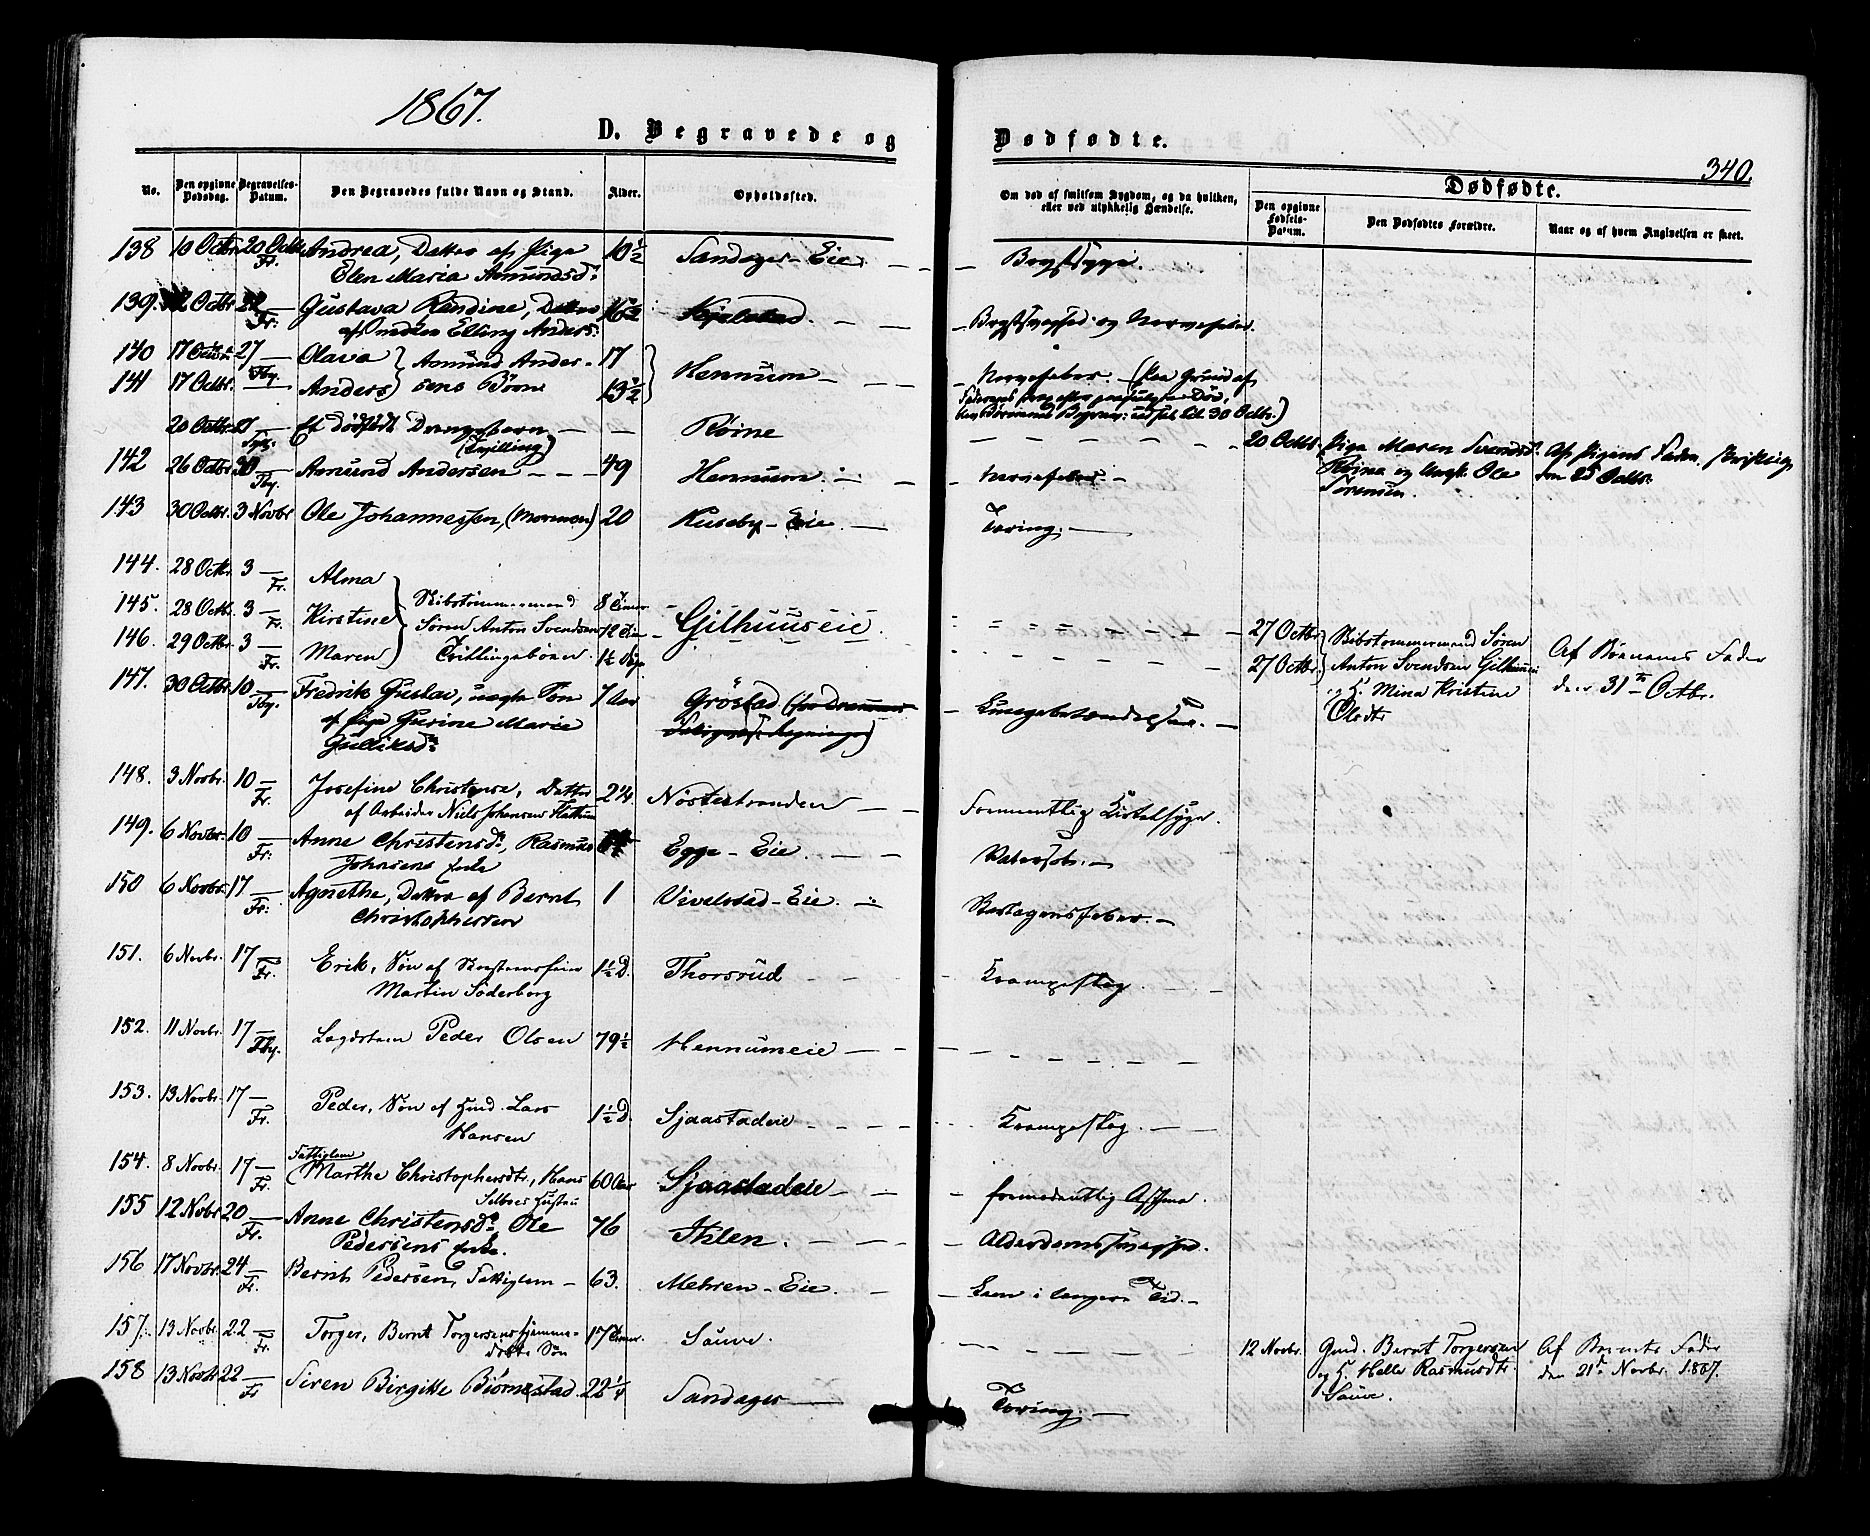 1867.
D. Begravede og
Dødfødte.
340.
No.
Den opgivne Dødsdag.
Begravelses-Datum.
Den Begravedes fulde Navn og Stand.
Alder.
Opholdssted.
Om død af smitsom Sygdom, og da hvilken, eller ved ulykkelig Hændelse.
Dødfødte.
Den opgivne Fødsels-Datum.
Den Dødfødtes Forældre.
Naar og af hvem Angivelsen er skeet.
138 10 Octbr. 20 Octbr. Andrea, Datter af Pige 10½ Sandager-Eie — — Brystsyge.
Fr. Elen Maria Amundsd:
139. 22 Octbr. Gustava Randine, Datter 16½ — — Brystsvaghed og Nervefeber.
Fr. af Elling Anders:
140 17 Octbr. 27 — Olava } Amund Ander- 17 } Hennum — — Nervefeber. — (Paa Grund af
Tby.
141 17 Octbr. — Anders } sens Børn 13½
Faderens Død,
30 Octbr.)
20 Octbr. Et dødfødt Drengebarn — — Røine — — — 20 Octbr. Pige Maren Svendsd. Af Pigens Fader
(Tvilling) Røine og Ungk. Ole den 25 Octbr.
Sørensen.
142 26 Octbr. 30 — Amund Andersen — — 49 Hennum. — — Nervefeber —
Tby.
143 30 Octbr. 3 Novbr Ole Johannessen, (Mormon) 20 Huseby-Eie. — Tæring. —
144. 28 Octbr. 3 — Alma
Fr.
145. 28 Octbr. 3 — Kirstine } Skibstømmermand 8 Timer
Fr. Søren Anton Svendsen 12 Gilhuuseie. 27 Octbr } Skibstømmermand Søren
146. 29 Octbr. 3 — Maren Trillingebørn 1½ 27 Octbr. } Anton Svendsen Gilhuuseie Af Børnenes Fader
Fr. og H. Mina Kristine den 31te Octbr.
Olsdtr
147. 30 Octbr. 10 — Fredrik Gustav, uægte Søn 7 Aar Grøstad (for Drammens —
Tby. af Pige Gurine Marie
Gulliksd:
148. 3 Novbr. 10 — Josefine Christense, Datter 2¼ Nøstestranden — — Formentlig Kirtelsyge.
Fr. af Arbeider Niels Johansen
149. 6 Novbr. 10 — Anne Christensd:, Rasmus Egge-Eie. — — Vatersot. —
Fr: Johnsens Enke
150 6 Novbr. 17 — Agnethe, Datter af Bernt 1 Vivelstad-Eie. —
Fr: Christophersen
151. 6 Novbr. 17 — Erik, Søn af Skorstensfeier 1½ D. Thorsrud — — Krampeslag. —
Fr. Martin Søderborg
152. 11 Novbr. 17 — Lægdslem Peder Olsen 79½ Hennumeie — — —
Tby.
153. 13 Novbr. 17 — Peder, Søn af Hmd. Lars 1½ D. Sjaastadeie — — — Krampeslag. — —
Fr. Hansen
154. 8 Novbr. 17 — Fattiglem
Fr. Marthe Christophersdtr., Hans 60 Aar Sjaastadeie — — formodentlig Asthma.
Hustru
155 12 Novbr 20 — Anne Christensd: Ole 76 Ihlen. — — Alderdomssvaghed.
Fr. Pedersens Enke.
156 17 Novbr. 24 — Bernt Pedersen, Fattiglem — 63. Mehren-Eie. — — i længere Tid. —
Fr.
157. 13 Novbr. 22 — Torger, Bernt Torgersens hjemme- 17 Timer. Sauve. — — — 12 Novbr. Gmd. Bernt Torgersen Af Barnets Fader
Fr. døbte Søn og H. Helle Rasmusdtr. den 21de Novbr. 1867.
Sauve.
158 13 Novbr. 22 — Siren Birgitte Biørnestad. 22¼ Sandager — Tæring. —
Fr